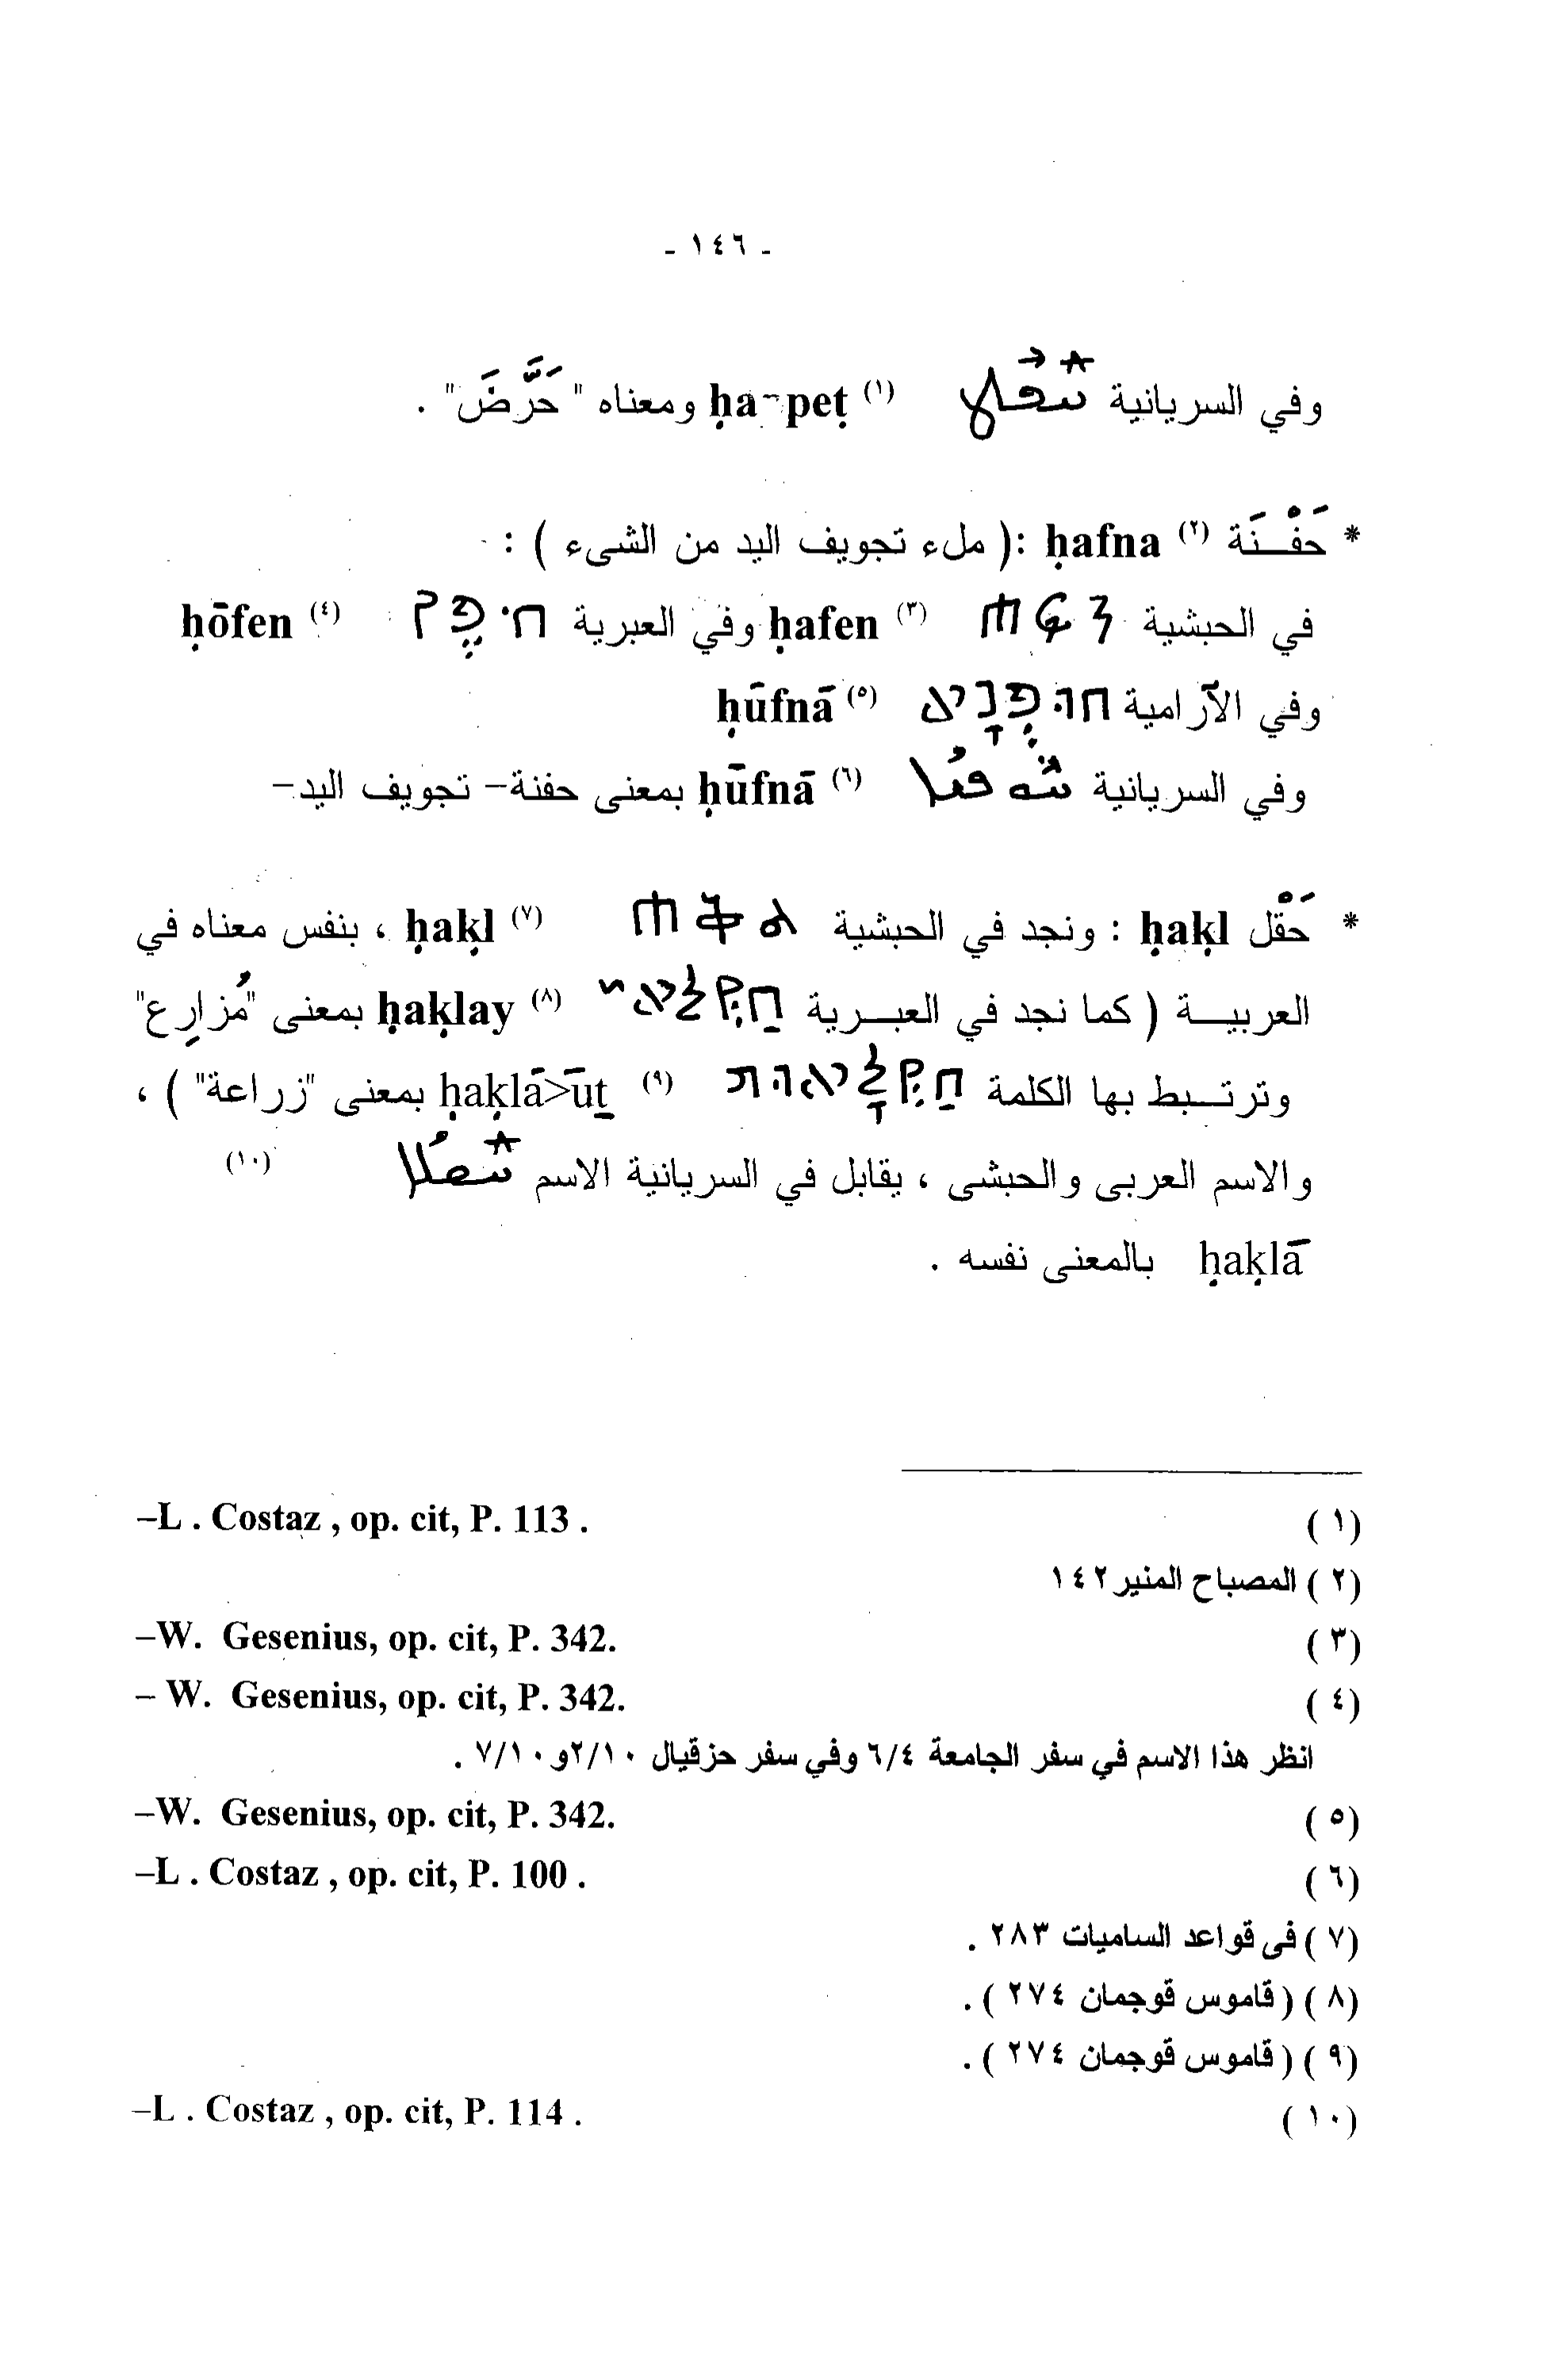 - ١٤٦ -
وفي السريانية ܚܰܦܶܛ (١) ḥa-peṭ ومعناه "حَرَّضَ" .
* حَفْـنَة (٢) ḥafna :( ملء تجويف اليد من الشىء ) :
في الحبشية ሐፍን (٣) ḥafen وفي العبرية חֹפֶן (٤) ḥōfen
وفي الآرامية חוּפְנָא (٥) ḥūfnā
وفي السريانية ܚܽܘܦܢܳܐ (٦) ḥūfnā بمعنى حفنة- تجويف اليد-
* حَقْل ḥaḳl : ونجد في الحبشية ሐቅል (٧) ḥaḳl ، بنفس معناه في
العربيــة ( كما نجد في العبـرية חַקְלַאי (٨) ḥaḳlay بمعنى "مُزارِع"
وترتـبط بها الكلمة חַקְלָאוּת (٩) ḥaḳlā>ūṯ بمعنى "زراعة" ) ،
والاسم العربى والحبشى ، يقابل في السريانية الاسم ܚܰܩܠܳܐ (١٠)
ḥaḳlā بالمعنى نفسه .
(١) –L . Costaz , op. cit, P. 113 .
(٢) المصباح المنير ١٤٢
(٣) –W. Gesenius, op. cit, P. 342.
(٤) – W. Gesenius, op. cit, P. 342.
انظر هذا الاسم في سفر الجامعة ٦/٤ وفي سفر حزقيال ٢/١٠و٧/١٠ .
(٥) –W. Gesenius, op. cit, P. 342.
(٦) –L . Costaz , op. cit, P. 100 .
(٧) فى قواعد الساميات ٢٨٣ .
(٨) (قاموس قوجمان ٢٧٤ ).
(٩) (قاموس قوجمان ٢٧٤ ).
(١٠) –L . Costaz , op. cit, P. 114 .